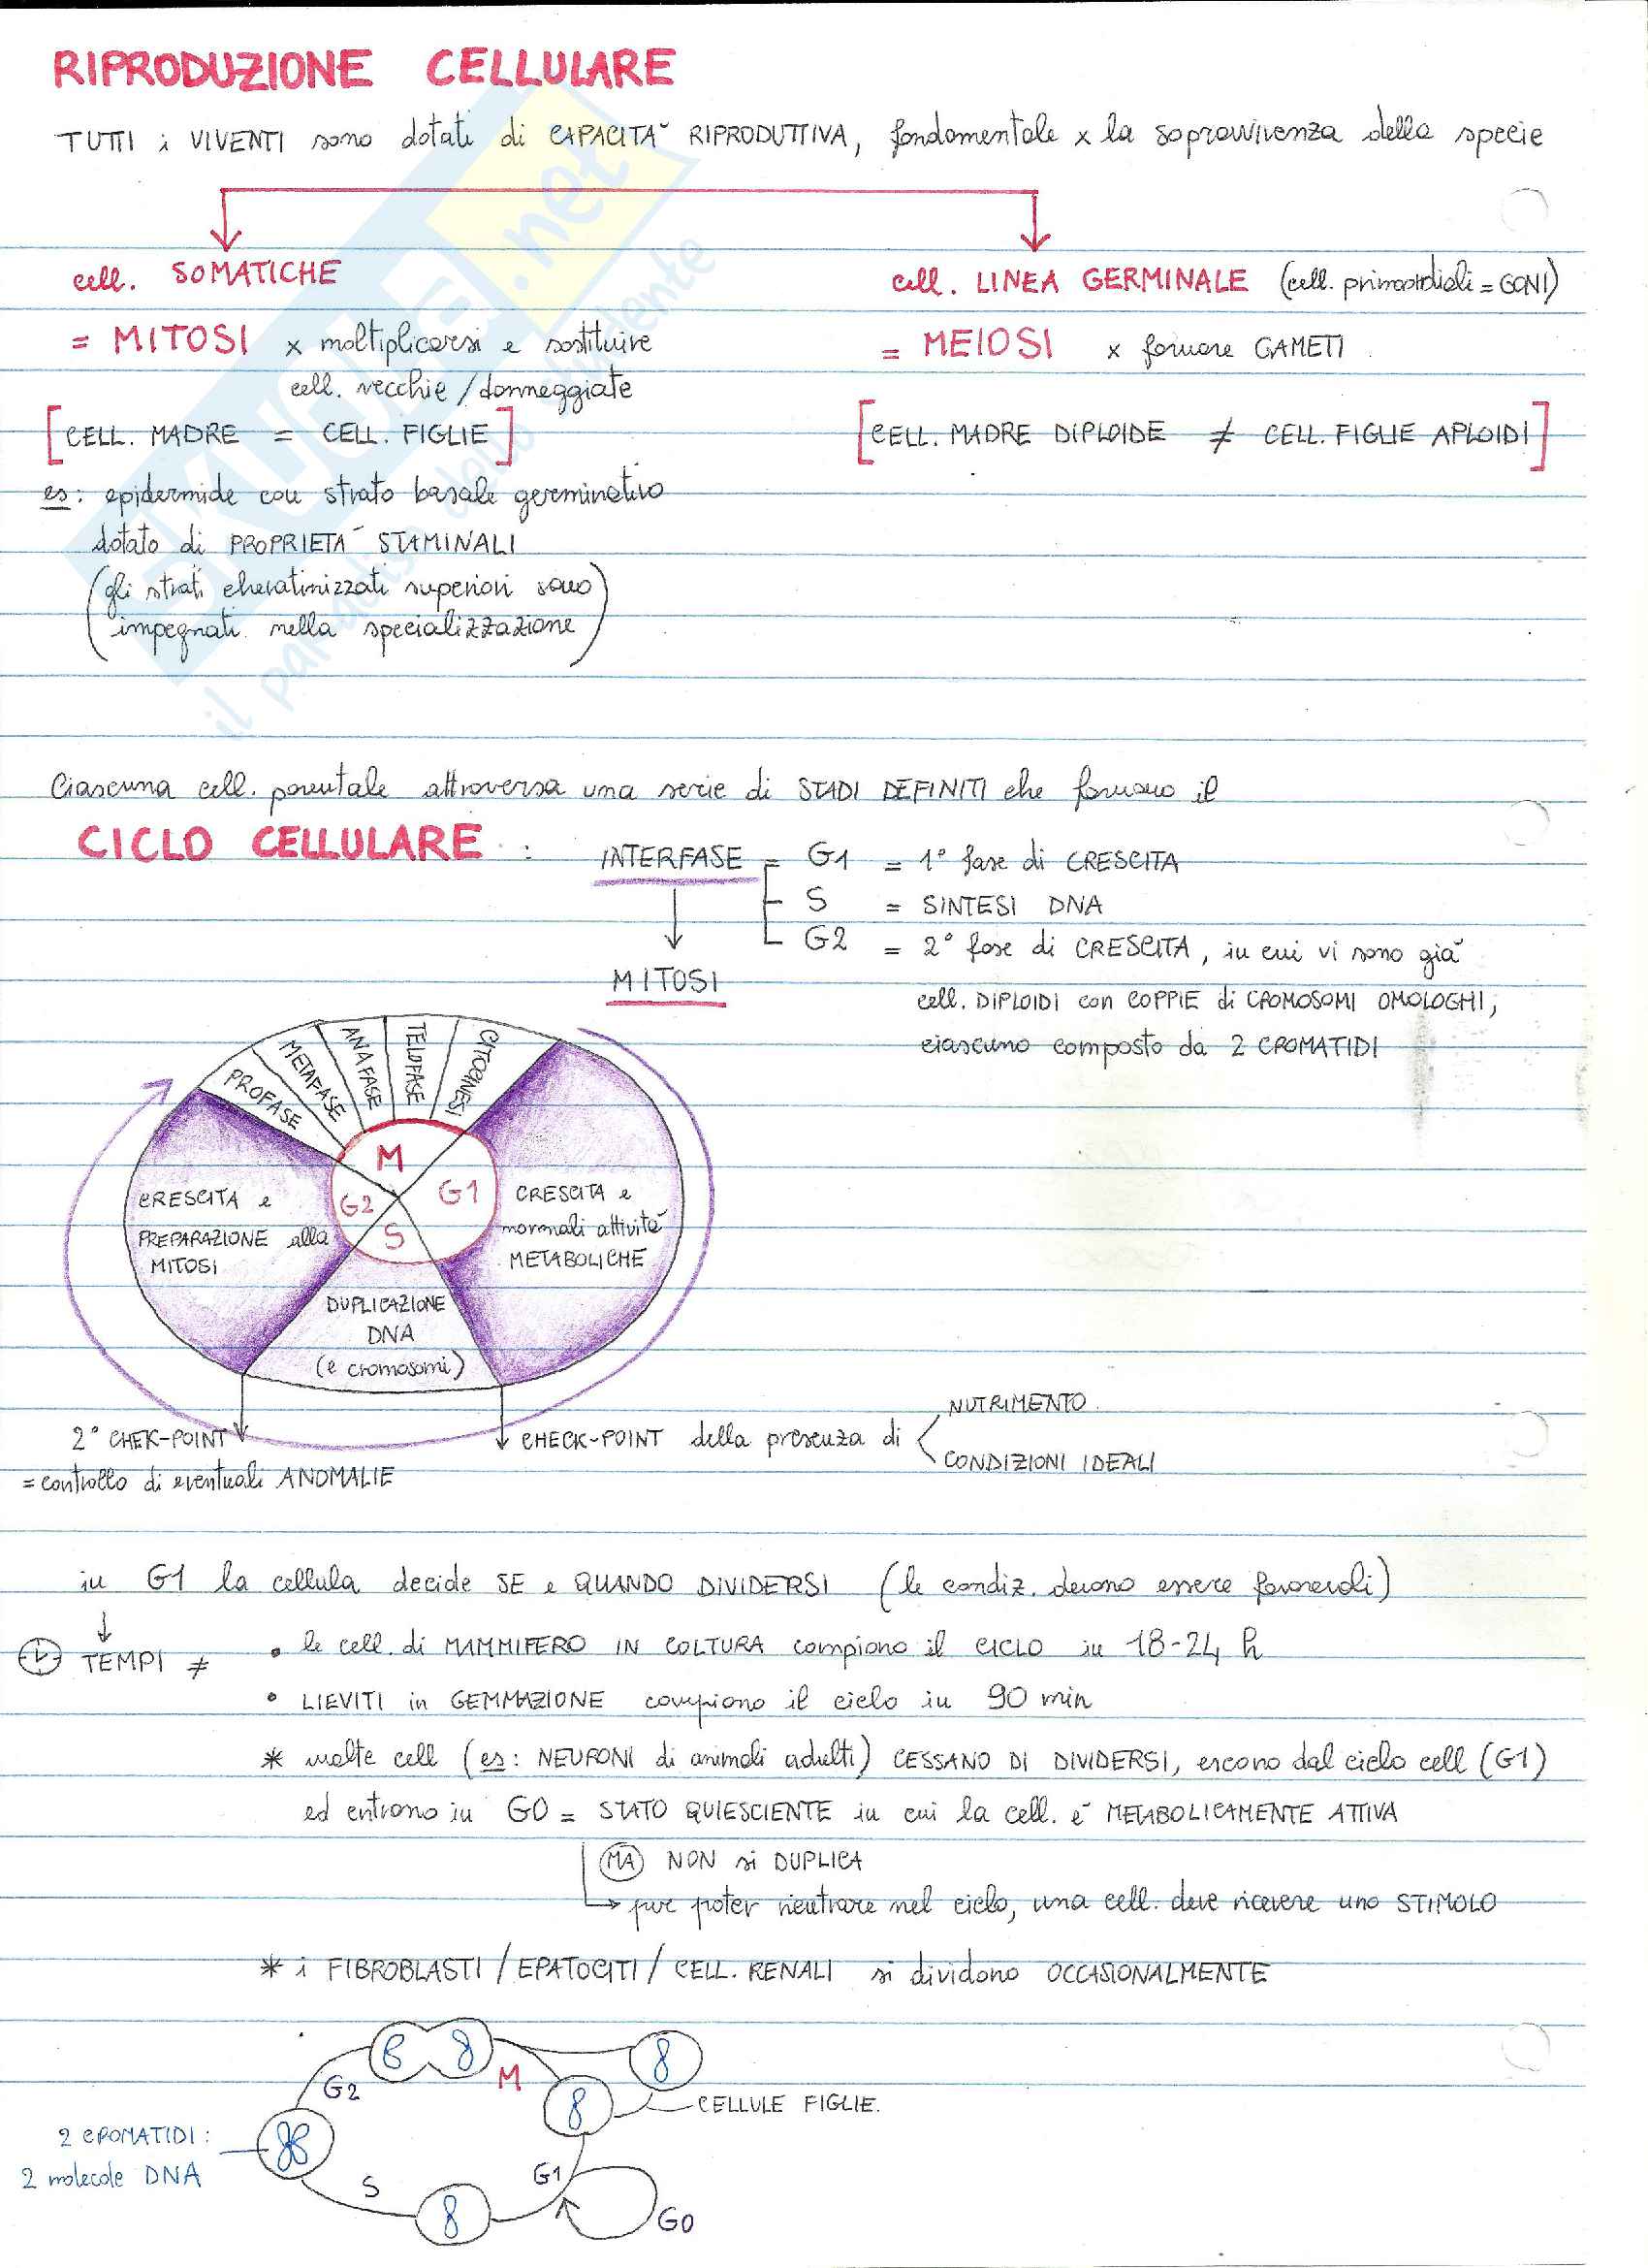 RIPRODUZIONE CELLULARE
TUTTI i VIVENTI sono dotati di CAPACITÀ RIPRODUTTIVA, fondamentale x la sopravvivenza della specie
cell. SOMATICHE
= MITOSI x moltiplicarsi e sostituire
cell. vecchie / danneggiate
[CELL. MADRE = CELL. FIGLIE]
es: epidermide con strato basale germinativo
dotato di PROPRIETÀ STAMINALI
(gli strati cheratinizzati superiori sono
impegnati nella specializzazione)
cell. LINEA GERMINALE (cell. primordiali = GONI)
= MEIOSI x formare GAMETI
[CELL. MADRE DIPLOIDE ≠ CELL. FIGLIE APLOIDI]
SKUOLA.net
il paradiso dello studente
Ciascuna cell. parentale attraversa una serie di STADI DEFINITI che formano il
CICLO CELLULARE :
INTERFASE = G1 = 1° fase di CRESCITA
S = SINTESI DNA
G2 = 2° fase di CRESCITA, in cui vi sono già
cell. DIPLOIDI con COPPIE di CROMOSOMI OMOLOGHI,
ciascuno composto da 2 CROMATIDI
MITOSI
PROFASE
METAFASE
ANAFASE
TELOFASE
CITOCINESI
M
G2
G1
S
CRESCITA e
PREPARAZIONE alla
MITOSI
CRESCITA e
normali attività
METABOLICHE
DUPLICAZIONE
DNA
(e cromosomi)
2° CHEK-POINT
= controllo di eventuali ANOMALIE
CHECK-POINT della presenza di
NUTRIMENTO
CONDIZIONI IDEALI
in G1 la cellula decide SE e QUANDO DIVIDERSI (le condiz. devono essere favorevoli)
TEMPI ≠
• le cell. di MAMMIFERO IN COLTURA compiono il CICLO in 18-24 h
• LIEVITI in GEMMAZIONE compiono il ciclo in 90 min
* molte cell (es: NEURONI di animali adulti) CESSANO DI DIVIDERSI, escono dal ciclo cell (G1)
ed entrano in G0 = STATO QUIESCIENTE in cui la cell. è METABOLICAMENTE ATTIVA
MA NON si DUPLICA
→ per poter rientrare nel ciclo, una cell. deve ricevere uno STIMOLO
* i FIBROBLASTI / EPATOCITI / CELL. RENALI si dividono OCCASIONALMENTE
G2
M
CELLULE FIGLIE.
2 CROMATIDI:
2 molecole DNA
S
G1
G0